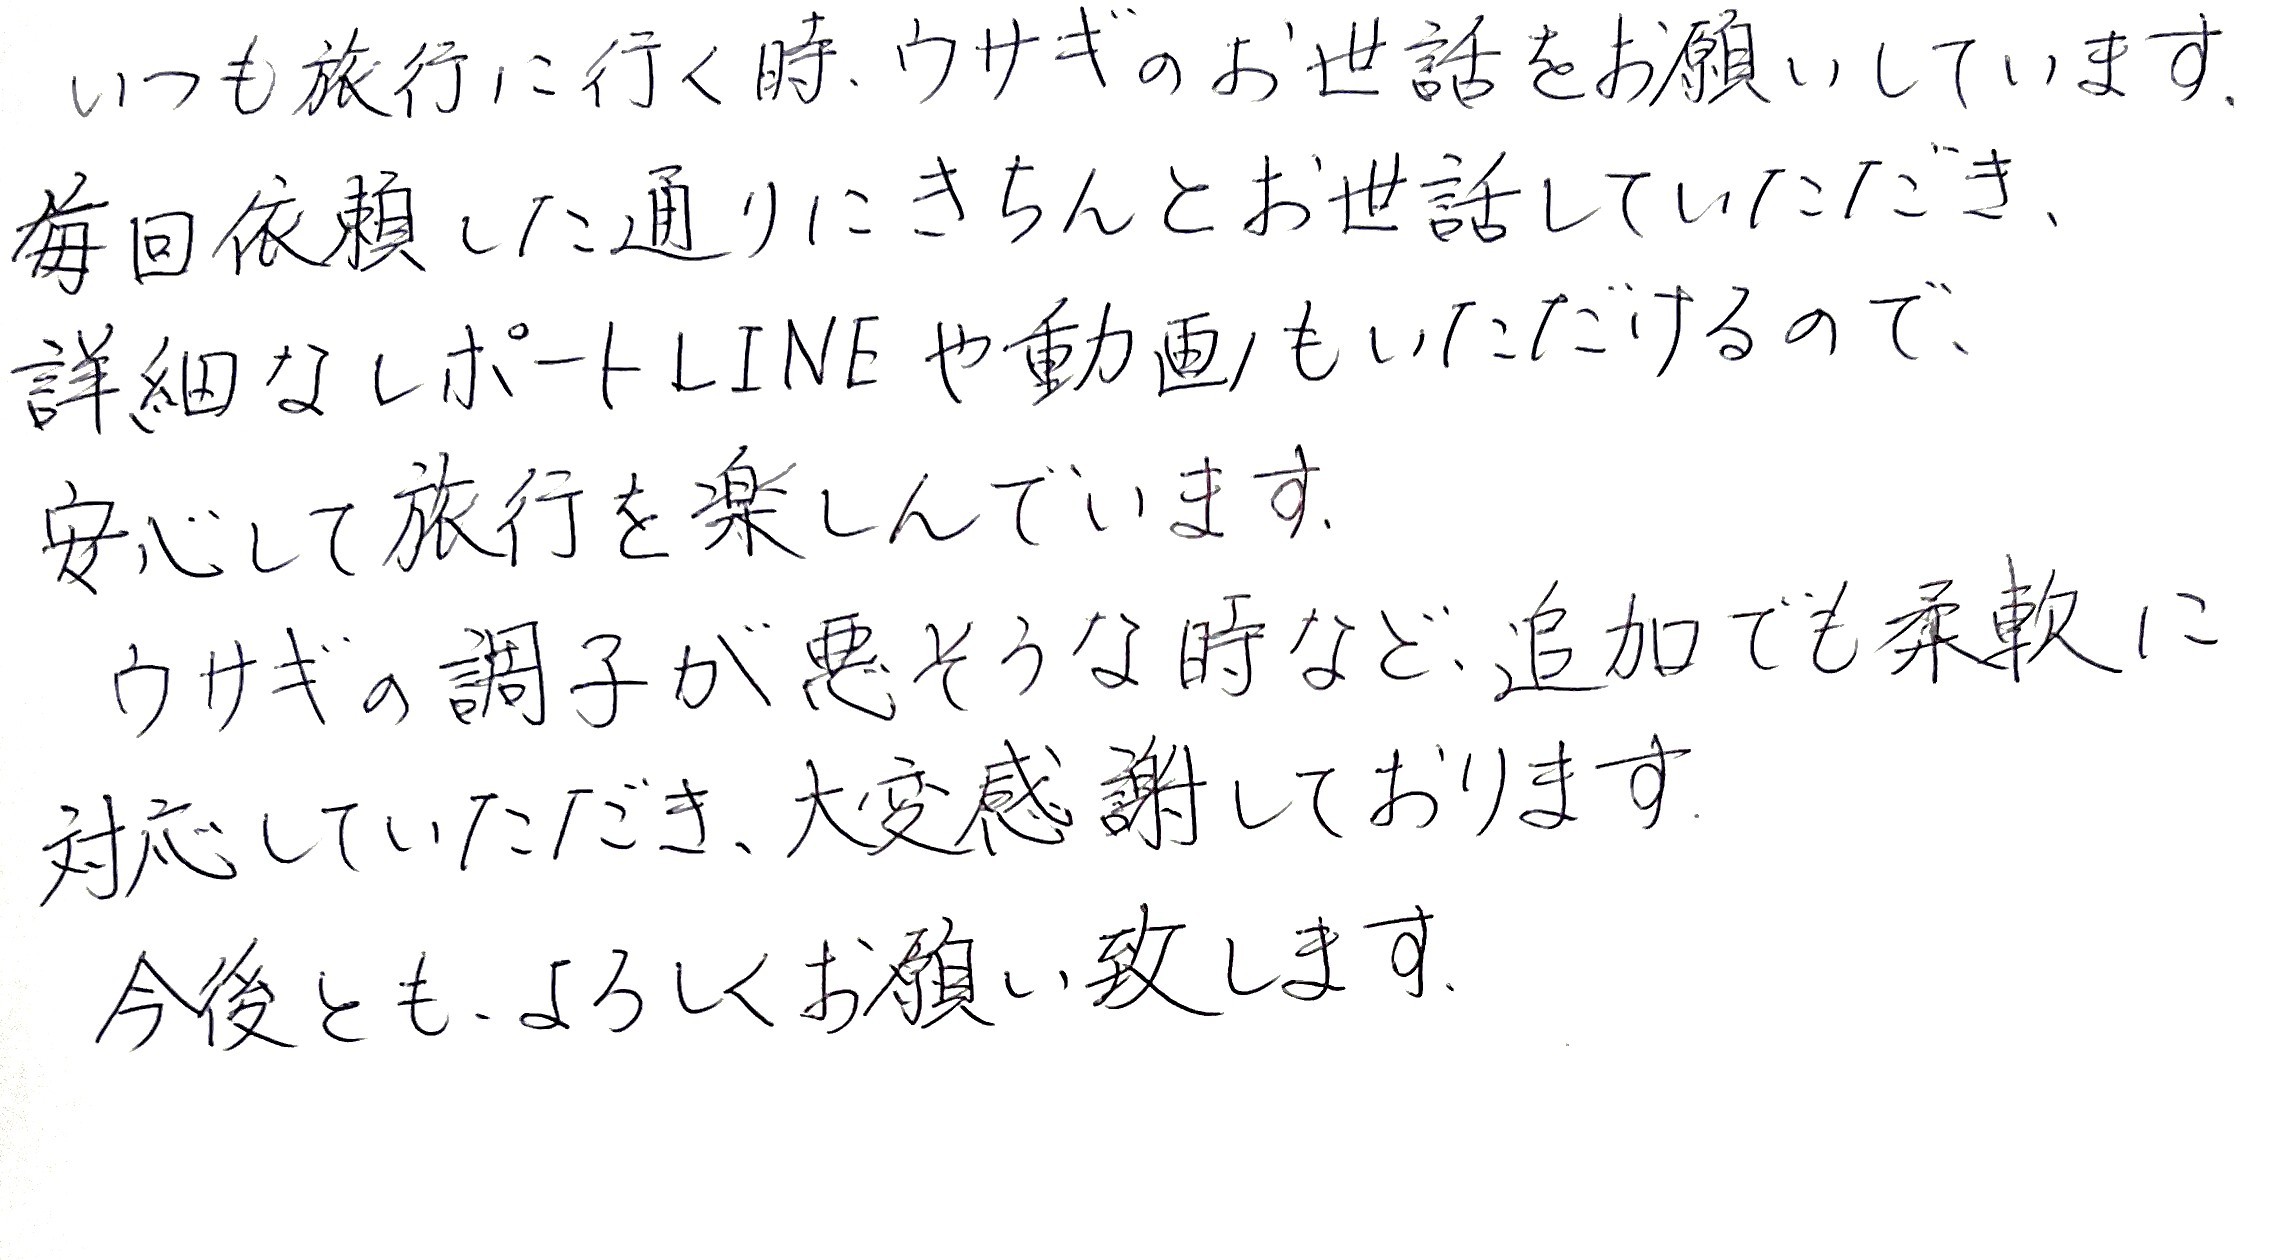 いつも旅行に行く時、ウサギのお世話をお願いしています.
毎回依頼した通りにきちんとお世話していただき、
詳細なレポートLINEや動画もいただけるので、
安心して旅行を楽しんでいます.
ウサギの調子が悪そうな時など、追加でも柔軟に
対応していただき、大変感謝しております.
今後とも、よろしくお願い致します.